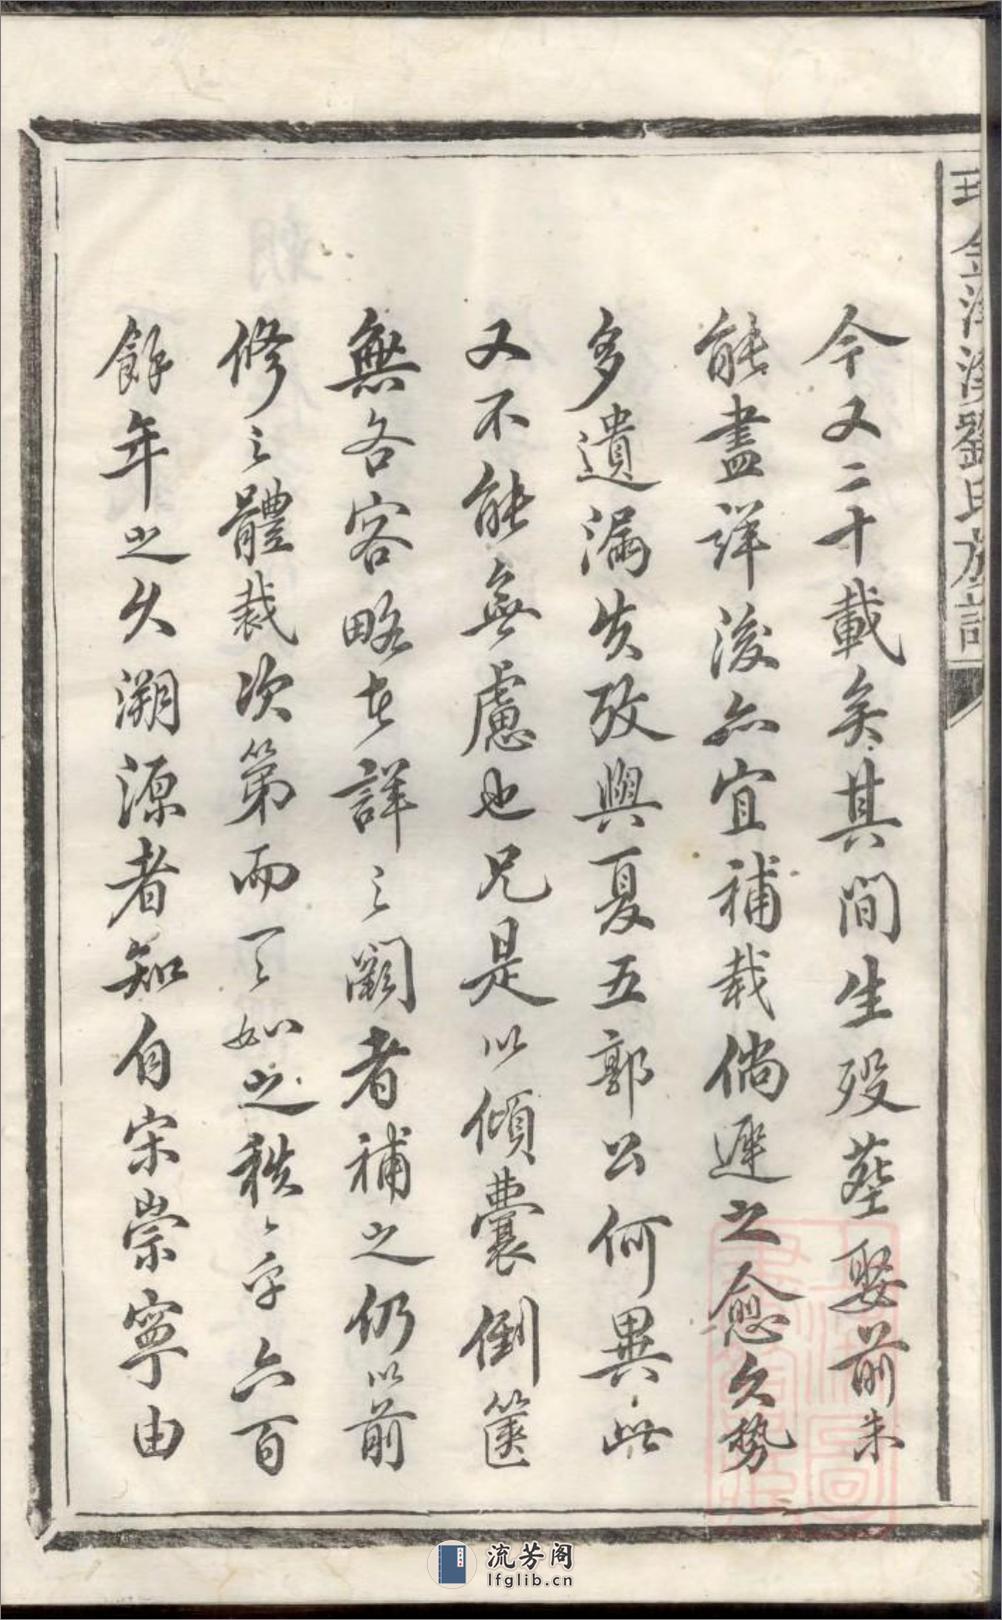 今又二十載矣其間生歿塟娶前未
能盡詳後亦宜補載倘遲之愈久勢
多遺漏失攷與夏五郭公何異此
又不能無慮也兄是以傾囊倒篋
無吝客略者詳之闕者補之仍以前
修之體裁次第而下如之秩秩乎六百
餘年之久溯源者知自宋崇寧由
金溪劉氏族譜
流芳阁
lfglib.cn